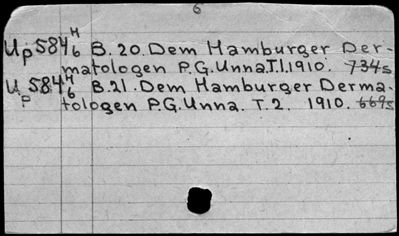 6
Up584 H/6 B.20. Dem Hamburger Der-
matologen P.G.Unna.T.1.1910. 734s
Up584 H/6 B.21. Dem Hamburger Derma-
tologen P.G.Unna. T.2. 1910. 669s